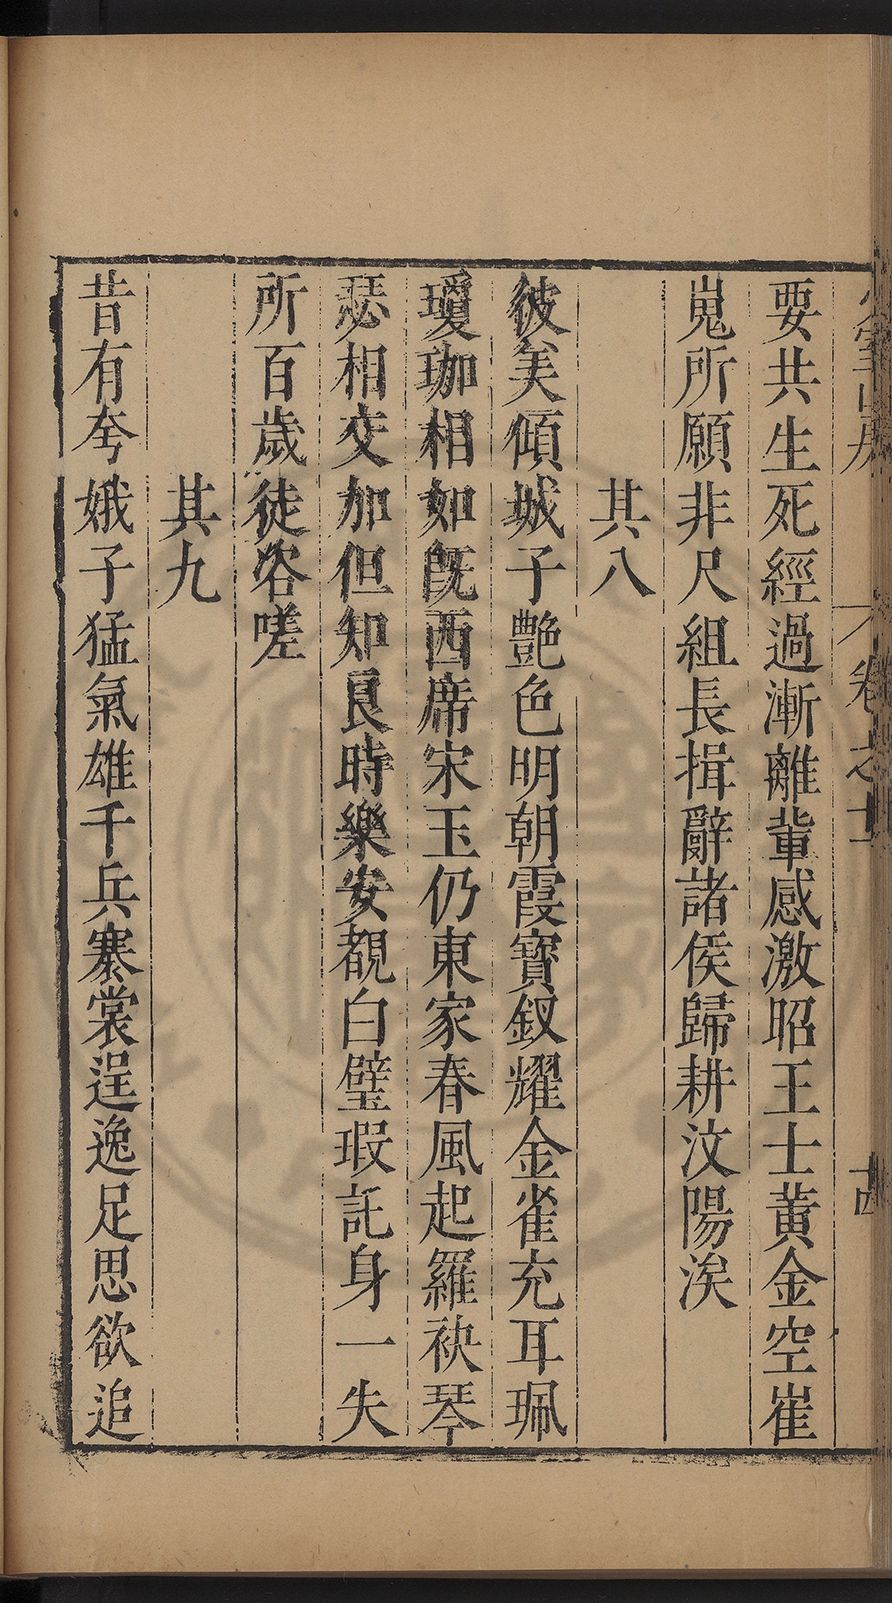 卷之十
古
要共生死經過漸離輩感激昭王士黄金空崔
嵬所願非尺組長揖辭諸侯歸耕汶陽涘
其八
彼美傾城子艷色明朝霞寳釵耀金雀充耳珮
瓊珈相如旣西席宋玉仍東家春風起羅袂琴
瑟相交加但知良時樂安覩白璧瑕託身一失
所百歲徒容嗟
其九
昔有夸娥子猛氣雄千兵褰裳逞逸足思欲追